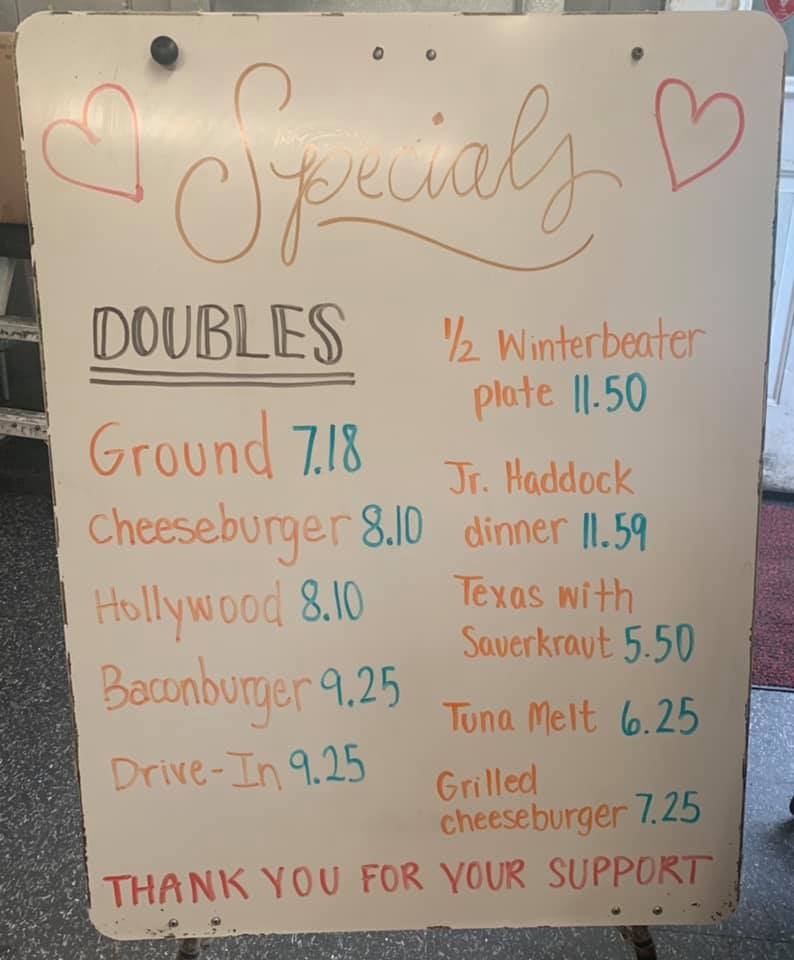 Specials
DOUBLES
Ground 7.18
Cheeseburger 8.10
Hollywood 8.10
Baconburger 9.25
Drive-In 9.25
1/2 Winterbeater
plate 11.50
Jr. Haddock
dinner 11.59
Texas with
Sauerkraut 5.50
Tuna Melt 6.25
Grilled
cheeseburger 7.25
THANK YOU FOR YOUR SUPPORT